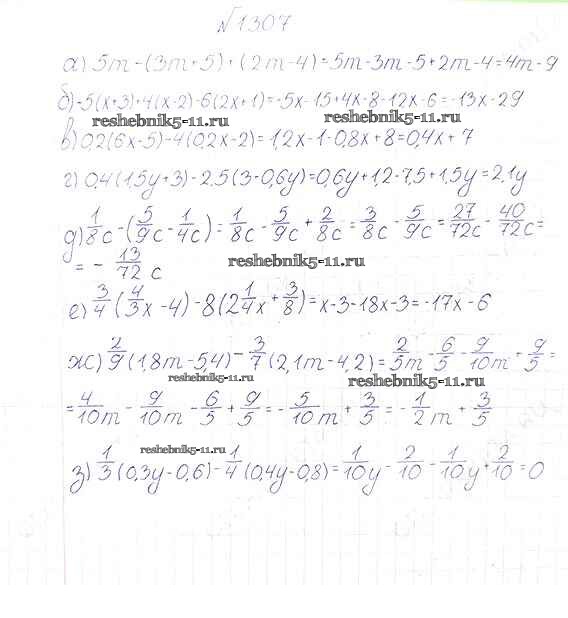 №1307
а) 5m-(3m+5)+(2m-4)=5m-3m-5+2m-4=4m-9
б)-5(x+3)+4(x-2)-6(2x+1)=-5x-15+4x-8-12x-6=-13x-29
reshebnik5-11.ru reshebnik5-11.ru
в) 0,2(6x-5)-4(0,2x-2)=1,2x-1-0,8x+8=0,4x+7
г) 0,4(1,5y+3)-2,5(3-0,6y)=0,6y+1,2-7,5+1,5y=2,1y
д) 1/8c-(5/9c-1/4c)=1/8c-5/9c+2/8c=3/8c-5/9c=27/72c-40/72c=
=-13/72 c reshebnik5-11.ru
е) 3/4(4/3x-4)-8(2 1/4x+3/8)=x-3-18x-3=-17x-6
ж) 2/9(1,8m-5,4)-3/7(2,1m-4,2)=2/5m-6/5-9/10m+9/5=
reshebnik5-11.ru reshebnik5-11.ru
=4/10m-9/10m-6/5+9/5=-5/10m+3/5=-1/2m+3/5
reshebnik5-11.ru
з) 1/3(0,3y-0,6)-1/4(0,4y-0,8)=1/10y-2/10-1/10y+2/10=0
reshebnik5-11.ru